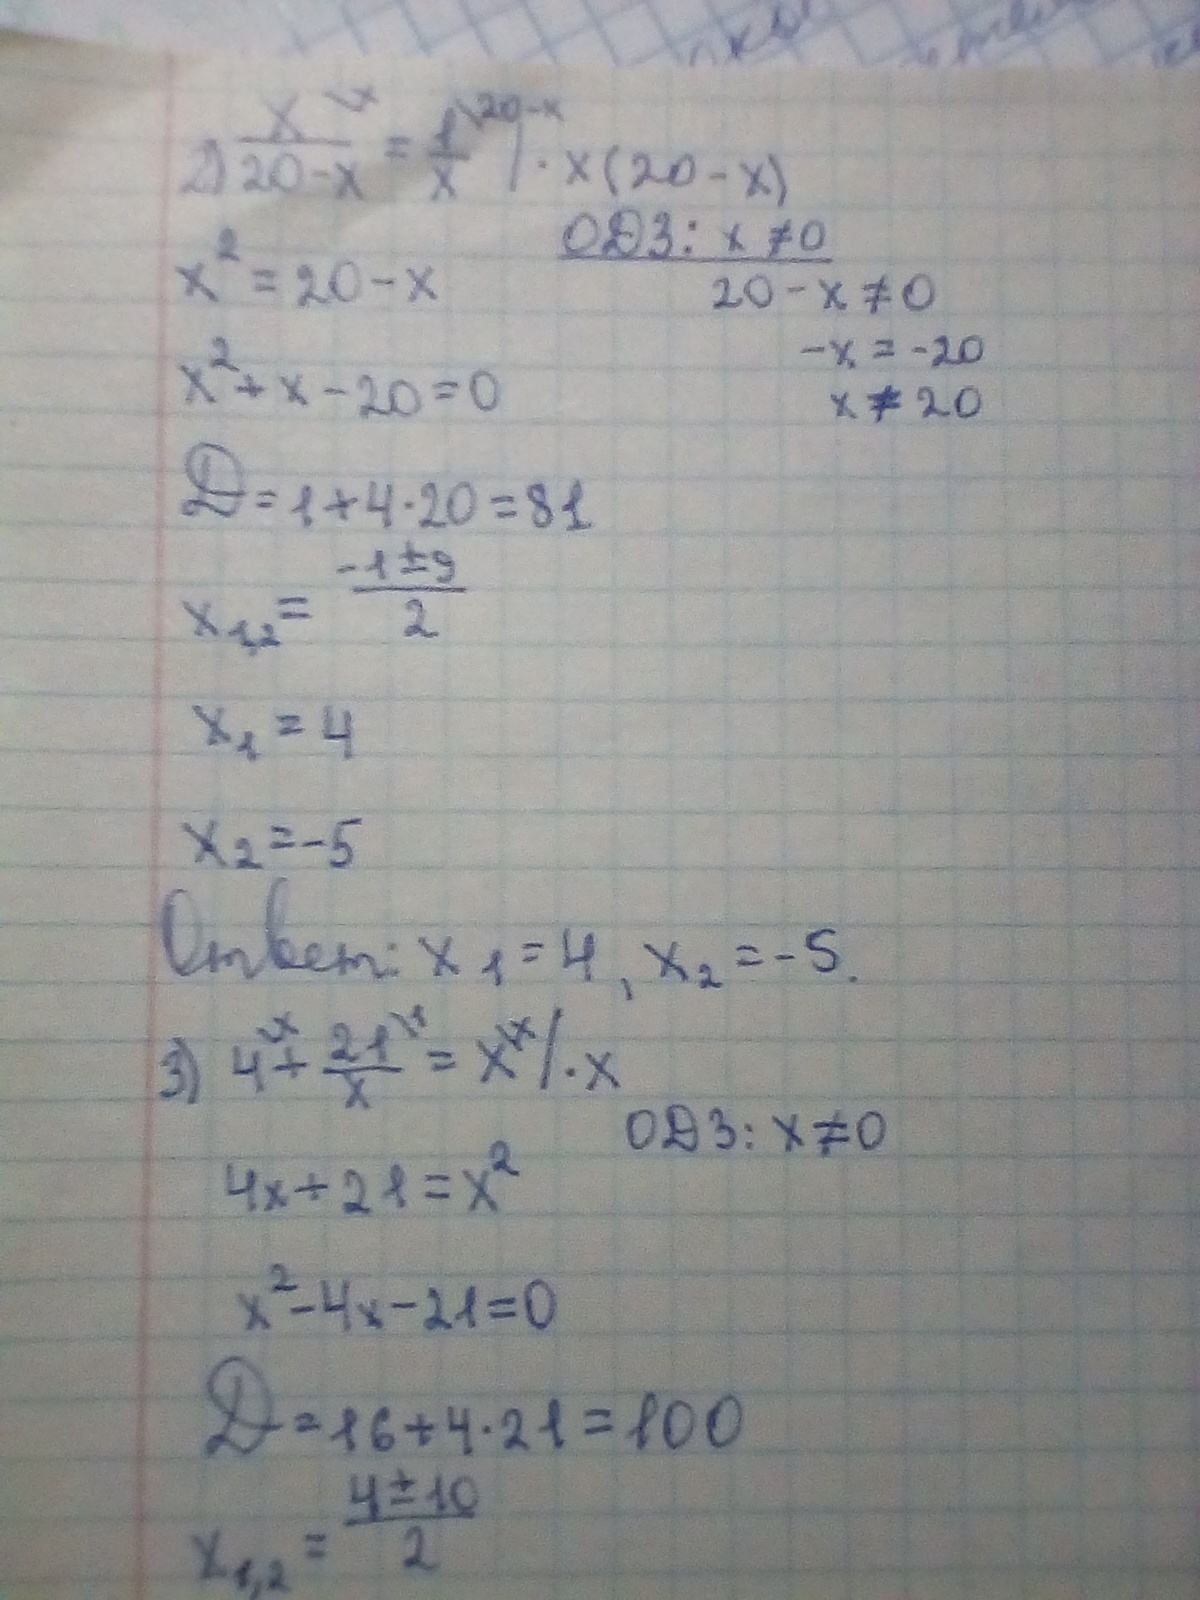 2) x\x / 20-x = 1\20-x / x /· x(20-x)
ОДЗ: x ≠ 0
x² = 20-x
20-x ≠ 0
-x = -20
x² + x - 20 = 0
x ≠ 20
D = 1+4·20 = 81
x1,2 = -1±9 / 2
x1 = 4
x2 = -5
Ответ: x1 = 4, x2 = -5.
3) 4\x + 21\1 / x = x\x /· x
ОДЗ: x ≠ 0
4x + 21 = x²
x² - 4x - 21 = 0
D = 16+4·21 = 100
x1,2 = 4±10 / 2